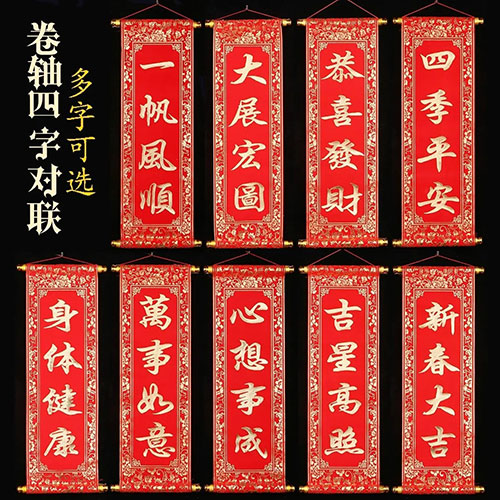 卷轴四字对联
多字可选
一帆風順
大展宏圖
恭喜發財
四季平安
身体健康
萬事如意
心想事成
吉星高照
新春大吉